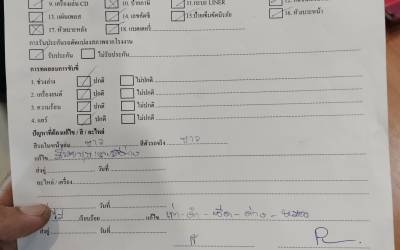 9. เครื่องเล่น CD 10. ป้ายภาษี 11. กะบะ LINER
13. แผ่นเพลท 14. เลขคัสซี 15. ป้ายเข็มขัดนิรภัย 16. หัวเบาะหน้า
17. หัวเบาะหลัง 18. แบตเตอรี่
การรับประกันรถดัดแปลงสภาพจากโรงงาน
รับประกัน ไม่รับประกัน
การทดสอบการขับขี่
1. ช่วงล่าง ปกติ ไม่ปกติ
2. เครื่องยนต์ ปกติ ไม่ปกติ
3. ความร้อน ปกติ ไม่ปกติ
4. แอร์ ปกติ ไม่ปกติ
ปัญหาที่ต้องแก้ไข / สี / อะไหล่
สีรถในหน้าเล่ม ขาว สีตัวรถจริง ขาว
แก้ไข
ส่งอู่ วันที่
อะไหล่ / เครื่อง
วันที่
เรียบร้อย แก้ไข
ส่งอู่ วันที่